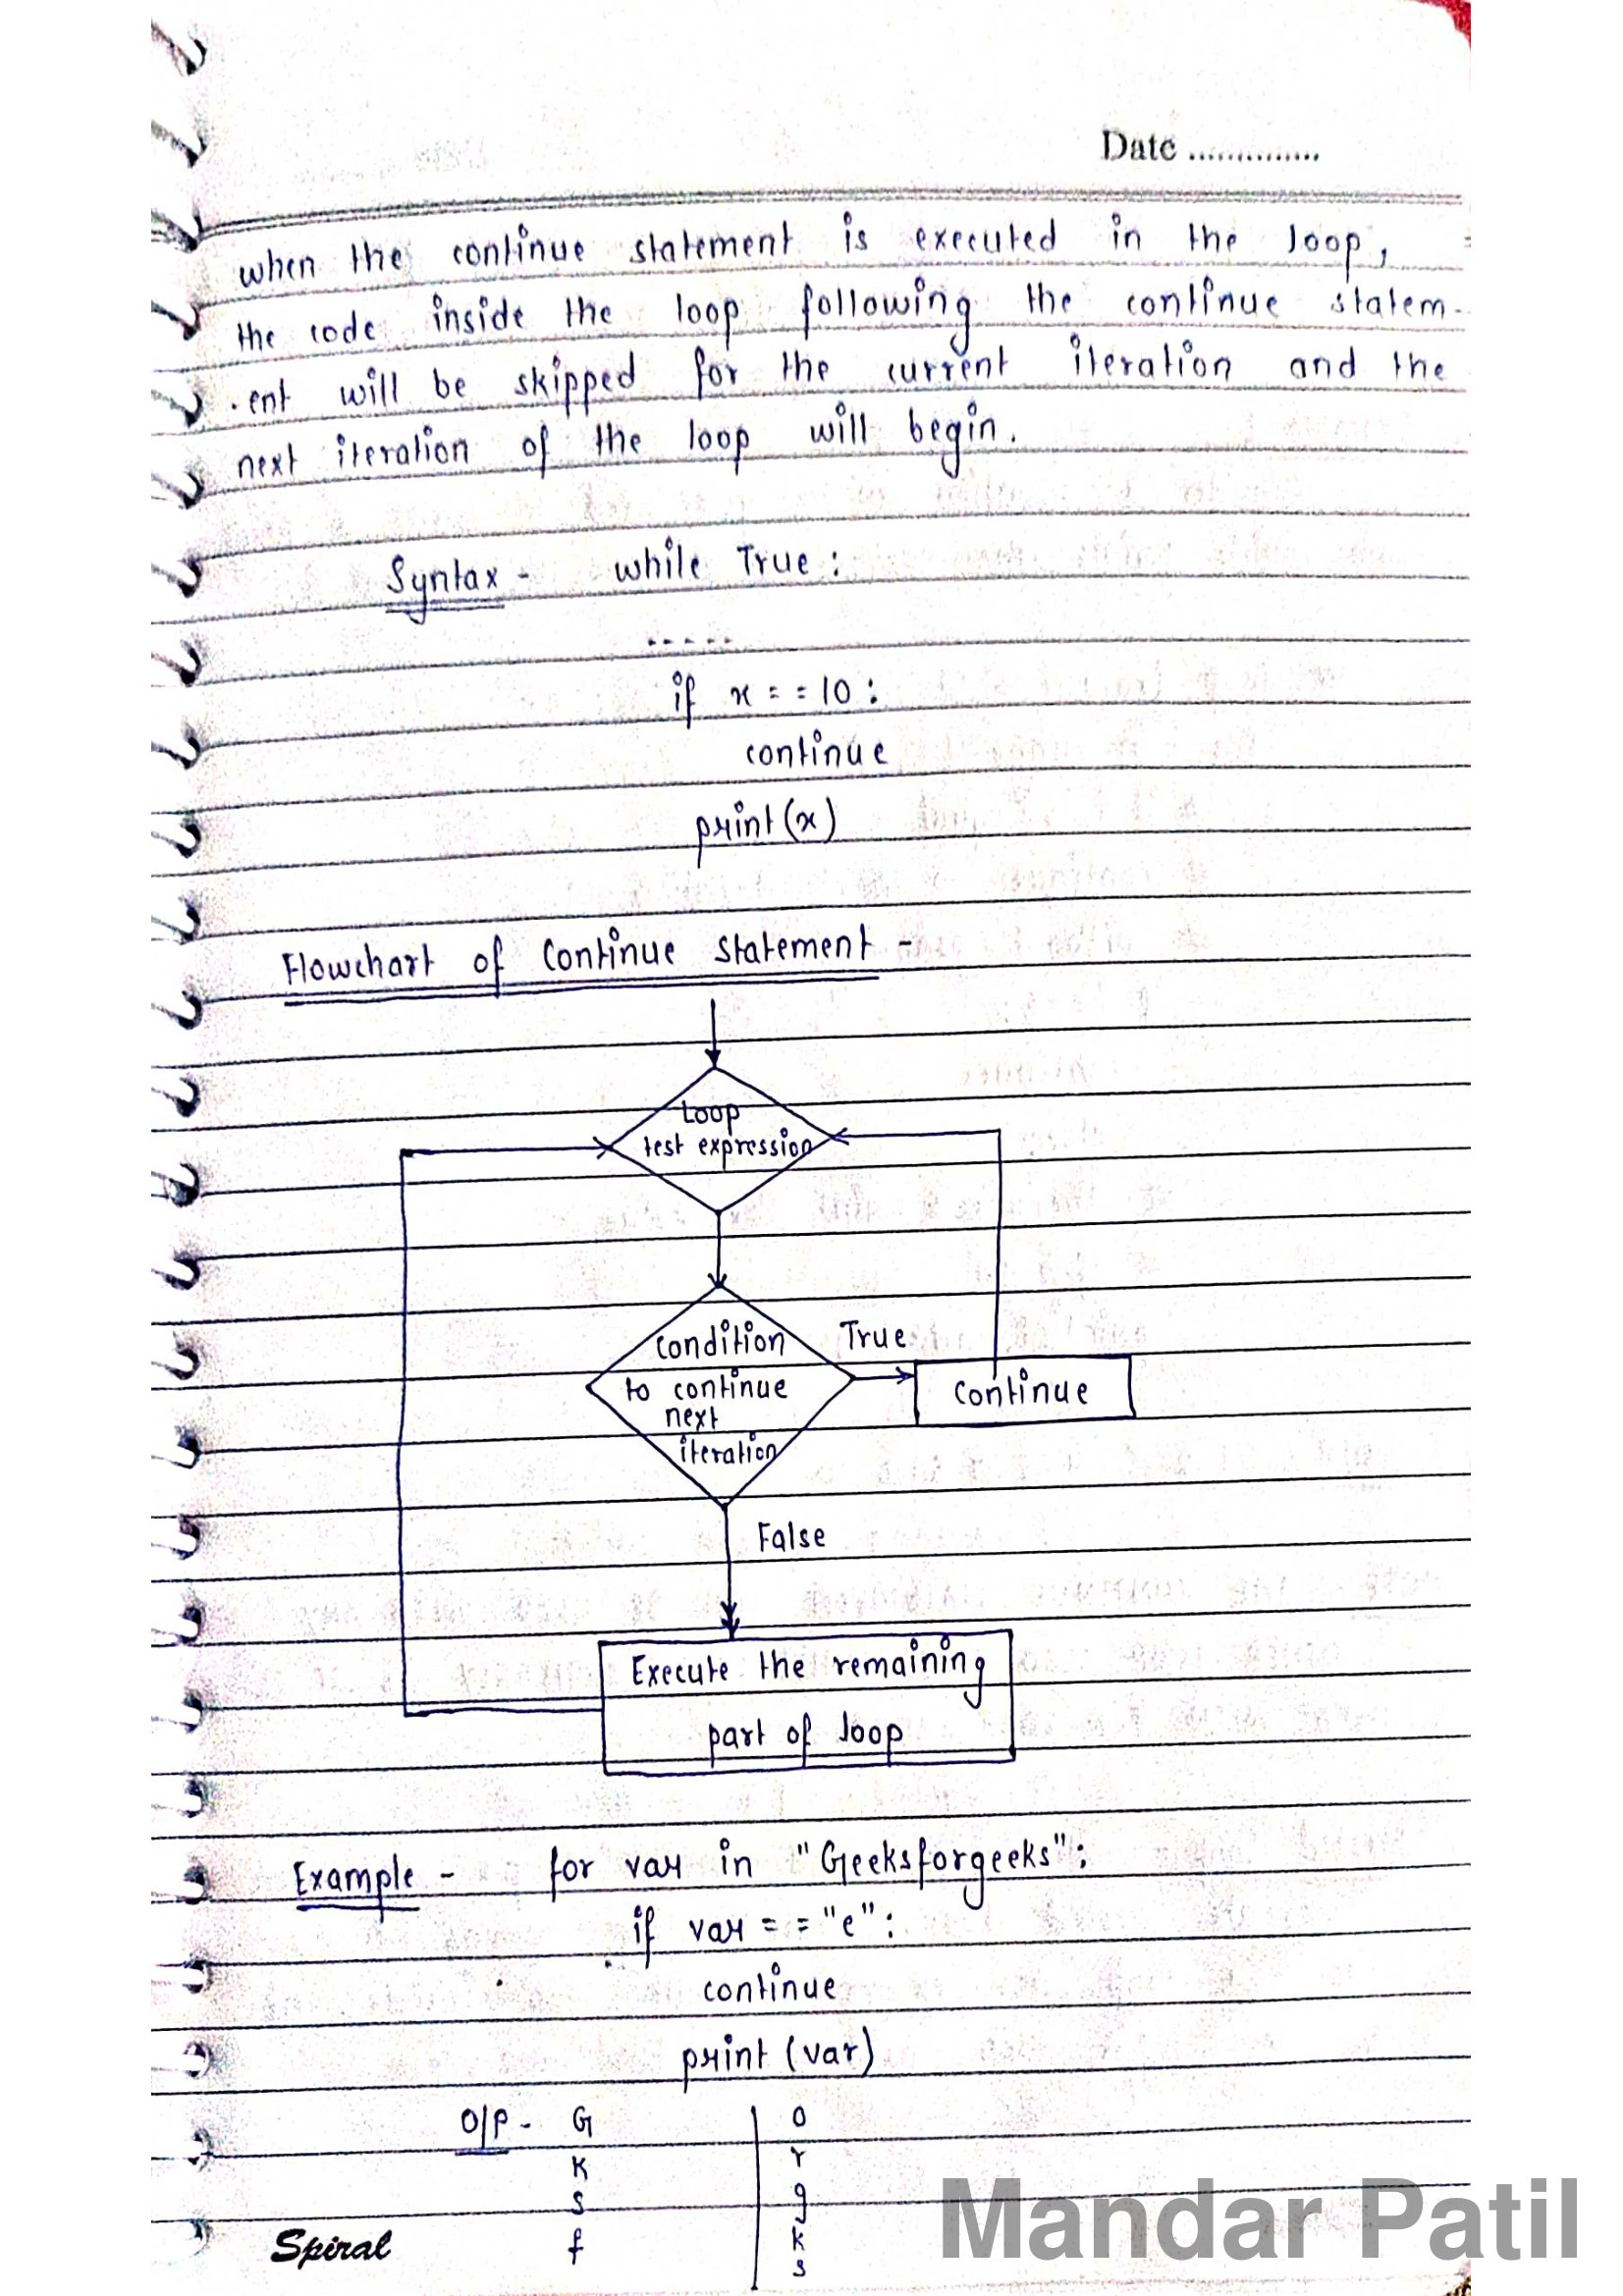 Date ..............
when the continue statement is executed in the loop,
the code inside the loop following the continue statem-
-ent will be skipped for the current iteration and the
next iteration of the loop will begin.
Syntax - while True :
.....
if x == 10 :
continue
print(x)
Flowchart of Continue Statement -
Loop
test expression
Condition
to continue
next
iteration
True
continue
False
Execute the remaining
part of loop
Example - for var in "Geeksforgeeks":
if var == "e":
continue
print (var)
O/P - G
K
s
f
o
r
g
k
s
Spiral
Mandar Patil